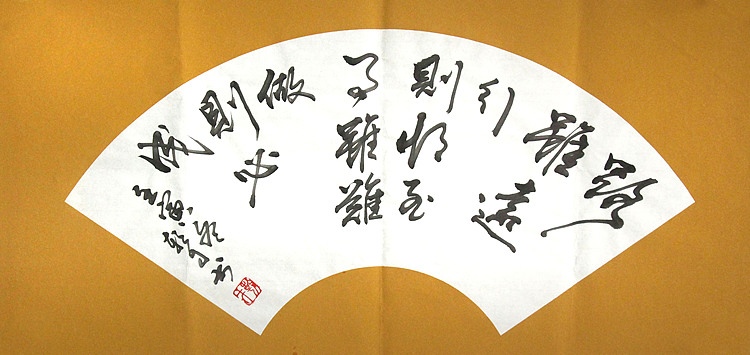 路
雖遠
行
則将至
事雖難
做
則必
成